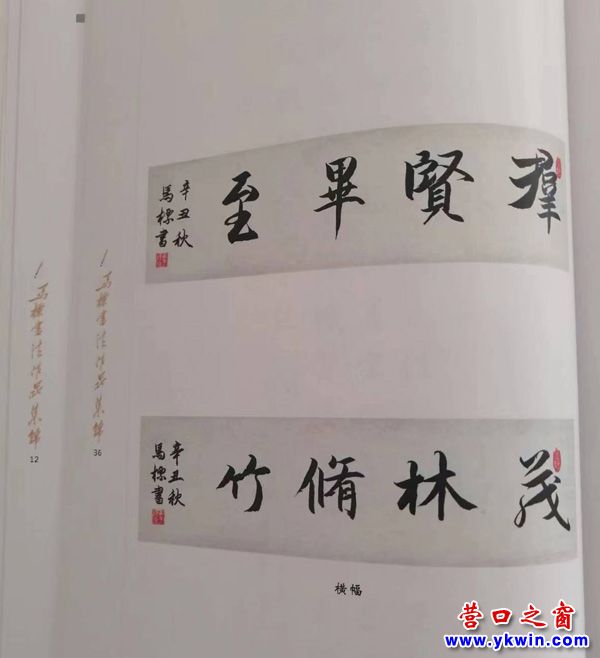 羣賢畢至
辛丑秋
馬標書
茂林脩竹
辛丑秋
馬標書
横幅
馬標書法作品集錦
36
馬標書法作品集錦
12
营口之窗
www.ykwin.com